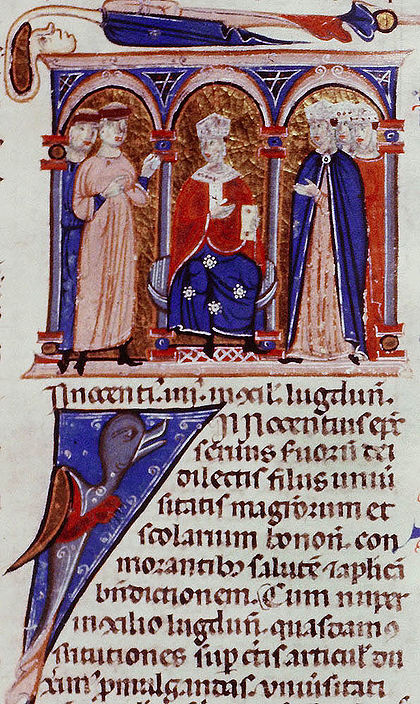 Innocenti. iiii. in ↄcil. lugdun̄.
NNocentius ep̄c
seruus suoꝝ dei
dilectis filiis uniū
sitatis magr̄orum et
scolarium bonon̄. con
morantibꝫ salutē ⁊ aplicā
bn̄dictionem. Cum nuper
in ↄcilio lugdun̄. quasdam ↄ
stitutiones suꝑ c̄tis articul̄ du
ximꝰ ꝓmulgandas. uniūsitati